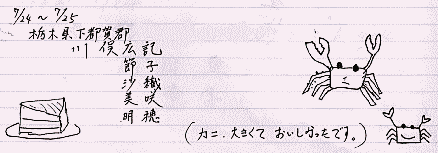 7/24～7/25
栃木県下都賀郡
川俣広記
節子
沙織
美咲
明穂
(カニ、大きくて おいしかったです。)